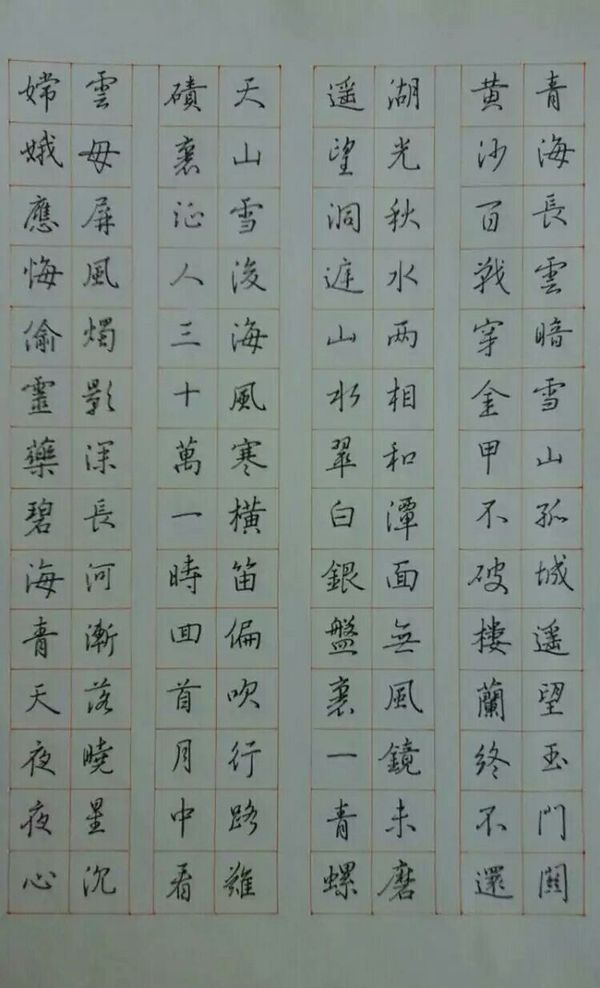 青海長雲暗雪山孤城遥望玉門關
黄沙百戰穿金甲不破樓蘭終不還
湖光秋水两相和潭面無風鏡未磨
遥望洞庭山水翠白銀盤裏一青螺
天山雪後海風寒橫笛偏吹行路難
磧裏征人三十萬一時回首月中看
雲母屏風燭影深長河漸落曉星沉
嫦娥應悔偷靈藥碧海青天夜夜心